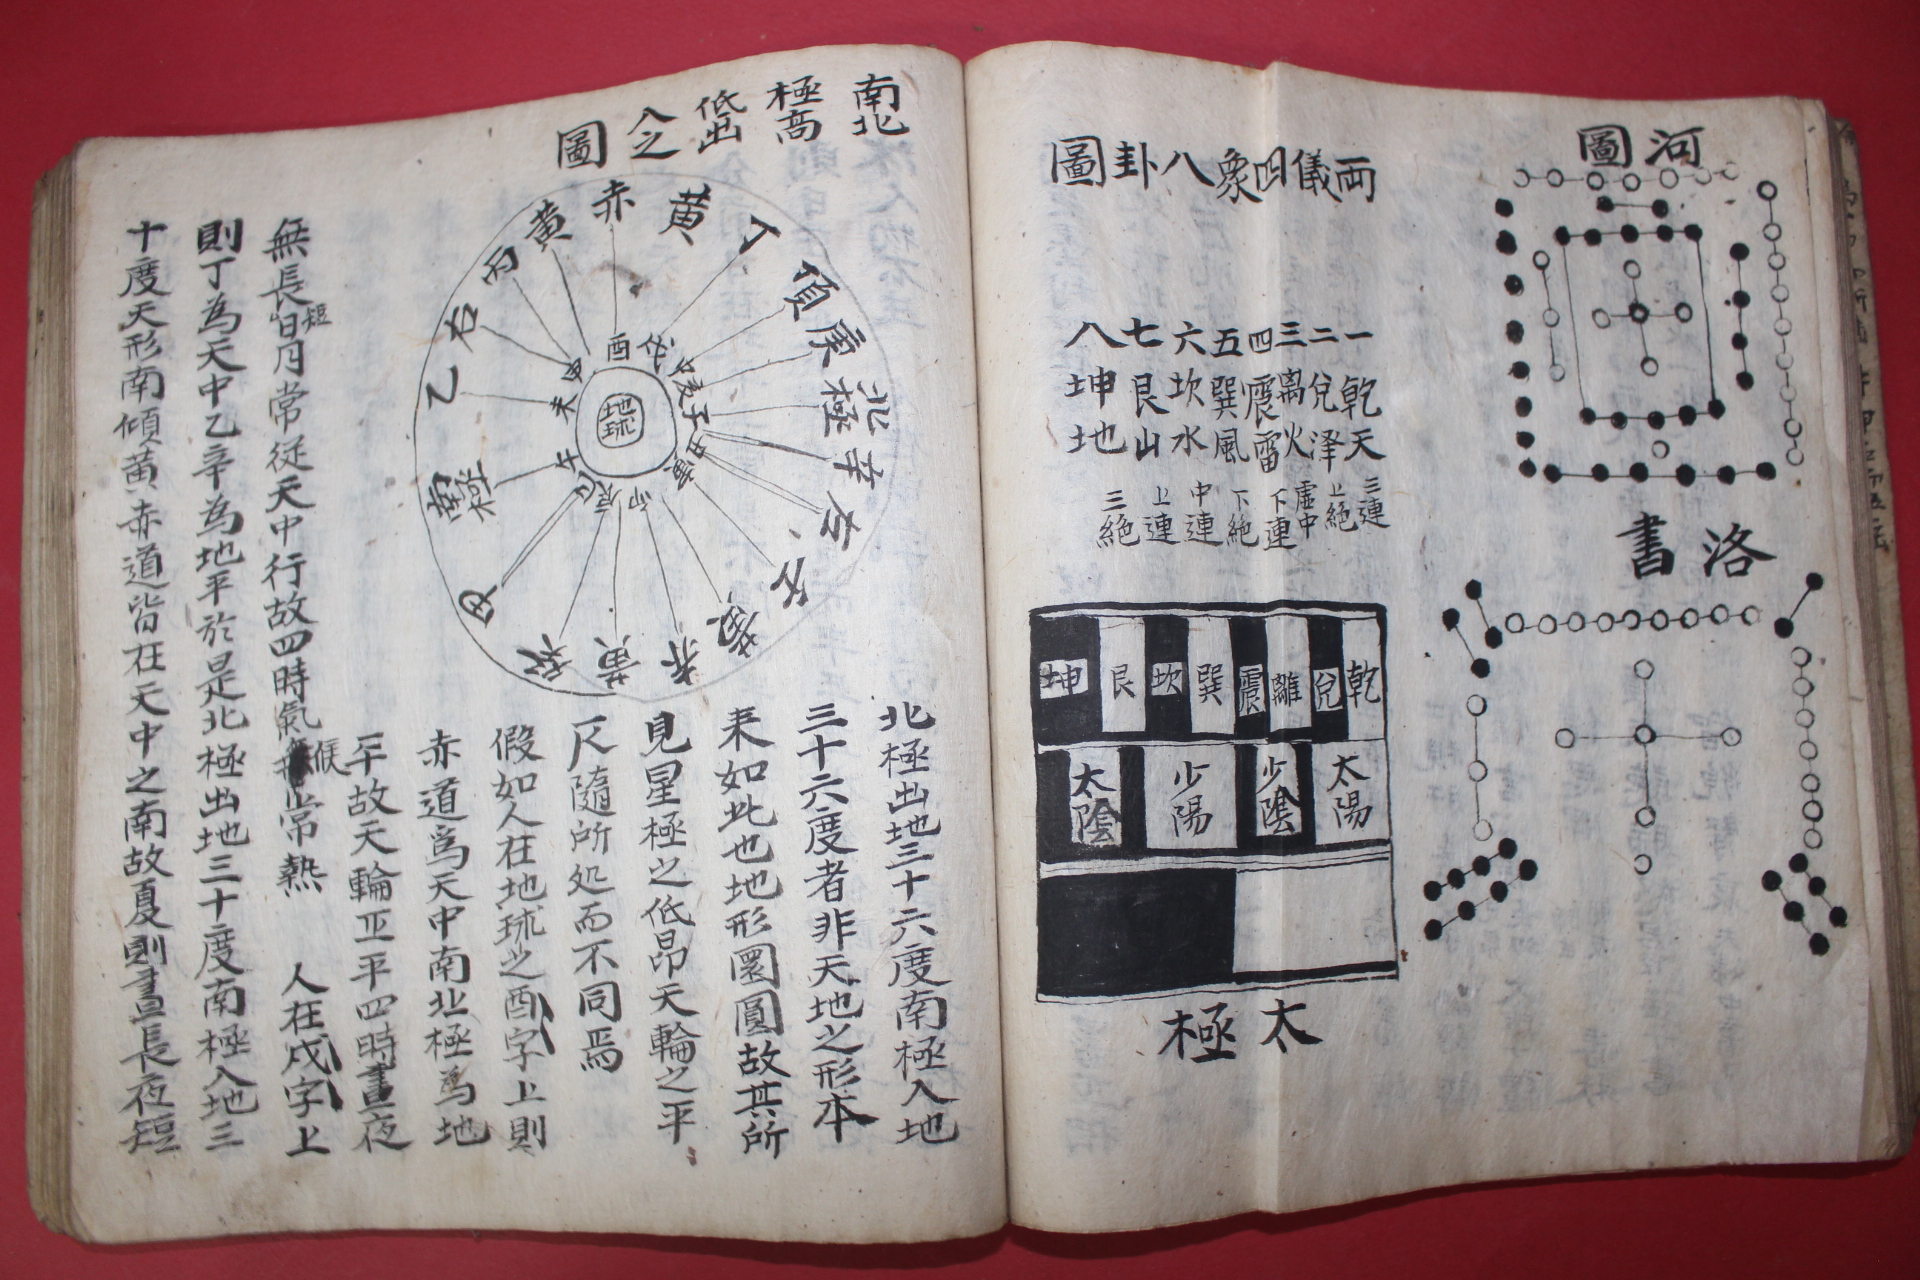 河圖
洛書
兩儀四象八卦圖
一乾天 三連
二兌澤 上絕
三离火 虛中
四震雷 下連
五巽風 下絕
六坎水 中連
七艮山 上連
八坤地 三絕
乾 兌 離 震 巽 坎 艮 坤
太陽 少陰 少陽 太陰
太極
南北
極高
低出
入之
圖
赤 黃 丁 傾 庚 北極 辛 左
赤 黃
南極 乙 右 丙 黃
酉 戌 亥 子 丑 寅 卯 辰 巳 午 未 申
地球
北極出地三十六度南極入地
三十六度者非天地之形本
来如此也地形圜圓故其所
見星極之低昂天輪之平
仄隨所処而不同焉
假如人在地球之酉字上則
赤道爲天中南北極爲地
平故天輪正平四時晝夜
無長短日月常從天中行故四時氣候常熱 人在戌字上
則丁為天中乙辛為地平於是北極出地三十度南極入地三
十度天形南傾黃赤道皆在天中之南故夏則晝長夜短